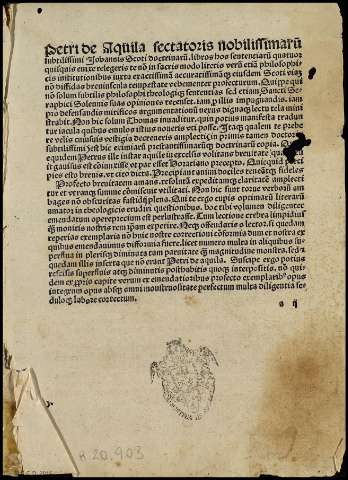 Petri de Aquila sectatoris nobilissimarū
subtilissimi Johannis Scoti doctrinarū, libros hos sentenciarū quotuꝫ
quisquis emꝫe relegeris te nō in sacris modo literis verū etiā philosophi
cis institutionibus iuxta exactissimā accuratissimāqꝫ eiusdem Scoti viaꝫ
nō diffidas breuiuscula tempestate vehementer profecturum. Qui
nō solum subtilis philosophi theologiqꝫ sententias sed etiam Sancti Se
raphici Solennis suas opiniones recenset. iam ꝓ illis impugnandis. iam
pro defensandis mirificos argumentationū neruos dignaqꝫ lectu tela mini
strabit. Non hic solum Thomas inuaditur. quin potius manifesta tradun
tur iacula quibus emulos istius noueris vti pacto. Itaqꝫ qualem te prebe
re velis cuiusuis vestigia decreueris amplecti in primis tamen doctoris
subtilissimi Jest hic eximiaꝫ prestantissimāqꝫ doctrinarū copia.
equidem Petrus ille instar aquile in excelsis volitans breuitate
it gauisus est enim risse vt par esset Horaciano precepto. Quicquid preci
pies esto breuis. vt cito dicta Precipiant animi dociles teneātqꝫ fideles
Profecto breuitatem amans. resolutā expeditāmqꝫ claritatē amplecti
tur et veramqꝫ summe consuescit vtilitati. Non hic sunt tortus verborū am
bages nō obscuritas fastidij plena. Qui te ergo cupis optimarū literarū
amatoꝫ in theologicis erudiri questionibus. hoc tibi volumen diligenter
emendatum opereprecium est perlustrasse. Cum lectione crebra limpidius
qꝫ monitis nostris rem ipsam experire. Neqꝫ offendaris o lector. si quedam
reperias exemplaria nō huic nostre correctioni cōformia dum et nostra ex
quibus emendauimus difformia fuere. licet numero mulea in aliquibus su
perflua in plerisqꝫ diminuta tam paruitate qꝫ magnitudine monstra. sed et
quedam illis inserta que nō erant Petri de aquila. Suscipe ergo potius
rescissis superfluis atqꝫ diminutis posthabitis quoqꝫ interpositis. nō qui
dem ex ꝓprio capite verum ex emendatioribus profecto exemplaribꝰ opus
integrum opus absqꝫ omni monstrositate perfectum mulea diligentia se
duloqꝫ labore correctum.
a ij
R.20.903